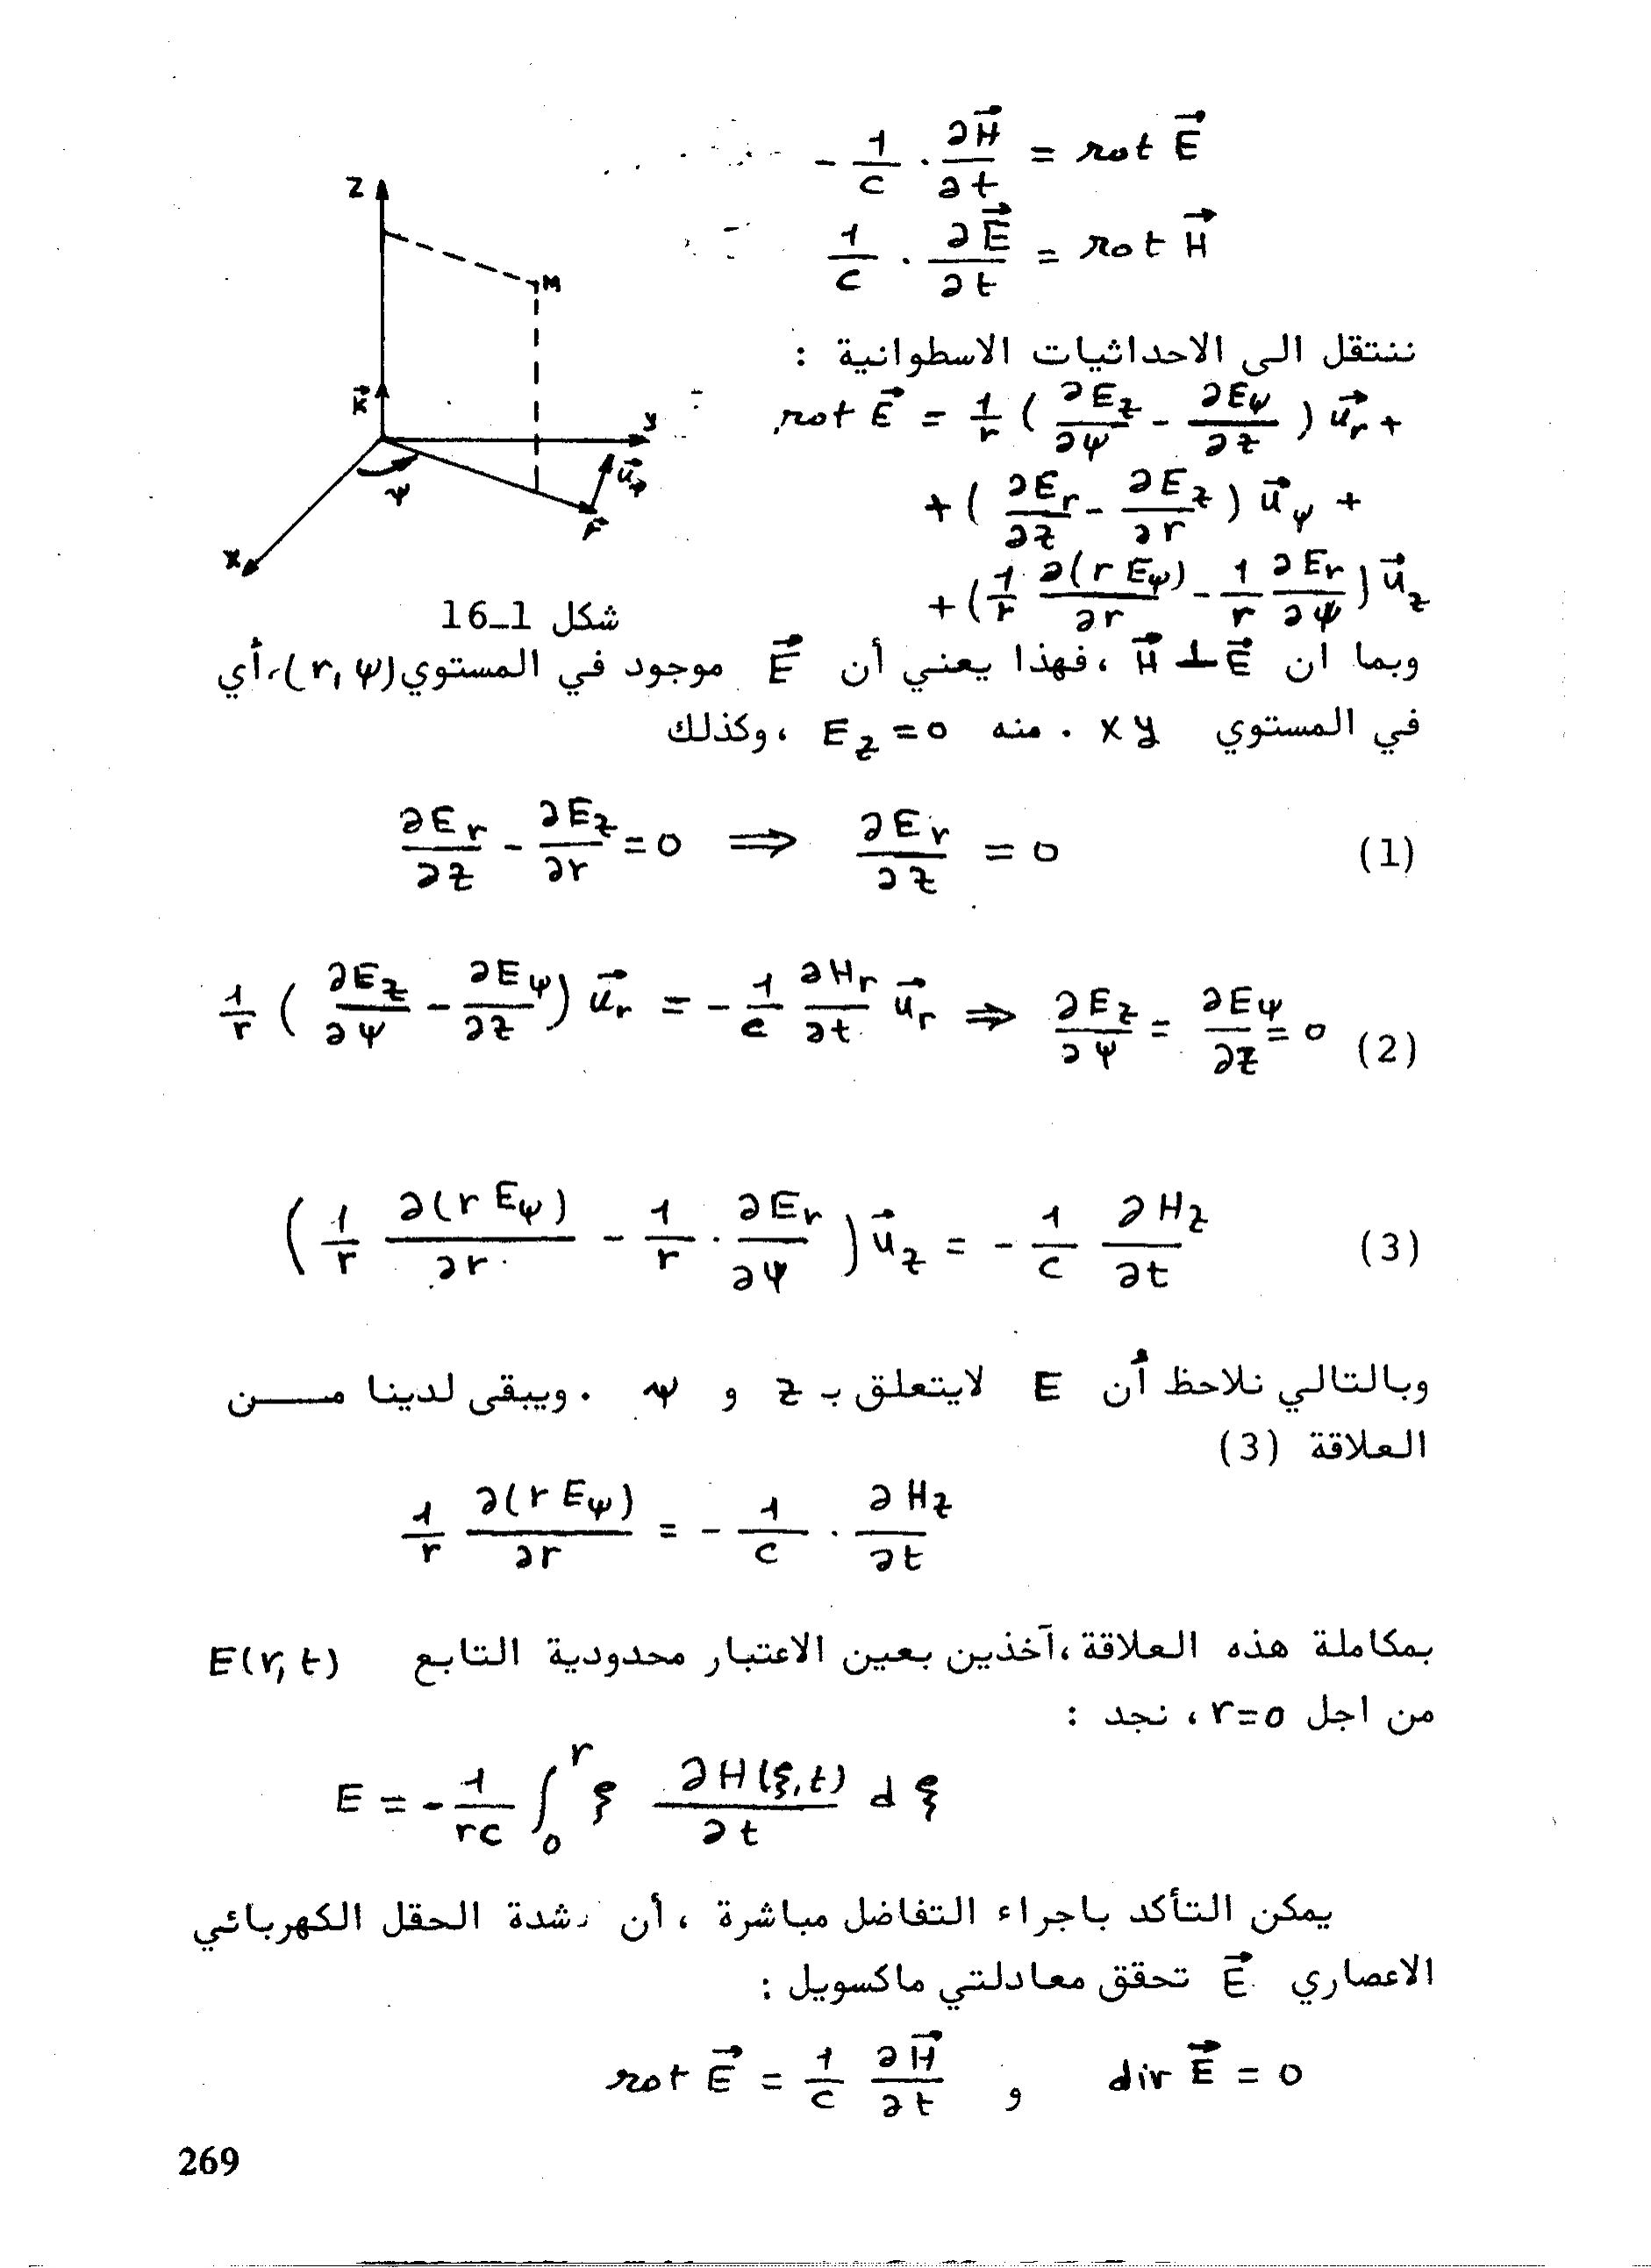 - 1/c · ∂H⃗/∂t = rot E⃗
1/c · ∂E⃗/∂t = rot H⃗
ننتقل الى الاحداثيات الاسطوانية :
rot E⃗ = 1/r ( ∂E_z/∂ψ - ∂E_ψ/∂z ) u⃗_r +
+ ( ∂E_r/∂z - ∂E_z/∂r ) u⃗_ψ +
+ ( 1/r ∂(r E_ψ)/∂r - 1/r ∂E_r/∂ψ ) u⃗_z
Z
M
K⃗
y
u⃗_φ
ψ
r⃗
X
شكل 1_16
وبما ان E⃗ ⊥ H⃗ ، فهذا يعني أن E⃗ موجود في المستوي (r, ψ)، أي
في المستوي x y . منه E_z = 0 ، وكذلك
∂E_r/∂z - ∂E_z/∂r = 0 ⟹ ∂E_r/∂z = 0 (1)
1/r ( ∂E_z/∂ψ - ∂E_ψ/∂z ) u⃗_r = - 1/c ∂H_r/∂t u⃗_r ⟹ ∂E_z/∂ψ = ∂E_ψ/∂z = 0 (2)
( 1/r ∂(r E_ψ)/∂r - 1/r · ∂E_r/∂ψ ) u⃗_z = - 1/c ∂H_z/∂t (3)
وبالتالي نلاحظ أن E لايتعلق بـ z و ψ . ويبقى لدينا مــــن
العلاقة (3)
1/r ∂(r E_ψ)/∂r = - 1/c · ∂H_z/∂t
بمكاملة هذه العلاقة ،آخذين بعين الاعتبار محدودية التابع E(r, t)
من اجل r=0 ، نجد :
E = - 1/rc ∫_0^r ξ ∂H(ξ,t)/∂t d ξ
يمكن التأكد باجراء التفاضل مباشرة ، أن شدة الحقل الكهربائي
الاعصاري E⃗ تحقق معادلتي ماكسويل :
rot E⃗ = 1/c ∂H⃗/∂t و dir E⃗ = 0
269